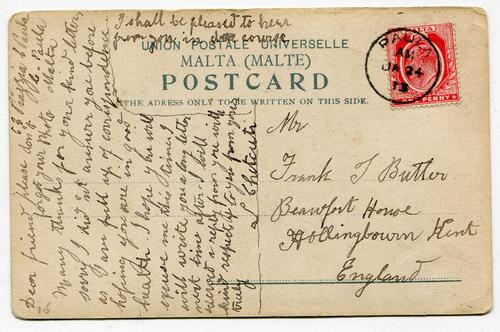 I shall be pleased to hear
from you in due course
UNION POSTALE UNIVERSELLE
MALTA (MALTE)
POSTCARD
THE ADRESS ONLY TO BE WRITTEN ON THIS SIDE.
MALTA
PENNY
AM
JA 24
13
Mr
Frank T Butler
Beaufort House
Hollingbourn Kent
England
Malta
Dear friend please don't
forget your Photo
Many thanks for your kind letter
sorry I did not answer you before
as I am full up of correspondence
hoping you are in good
health. I hope you will
excuse me this time, I
will write you a long letter
next time after I
received a reply from you with
kind respects to you from yours
truly